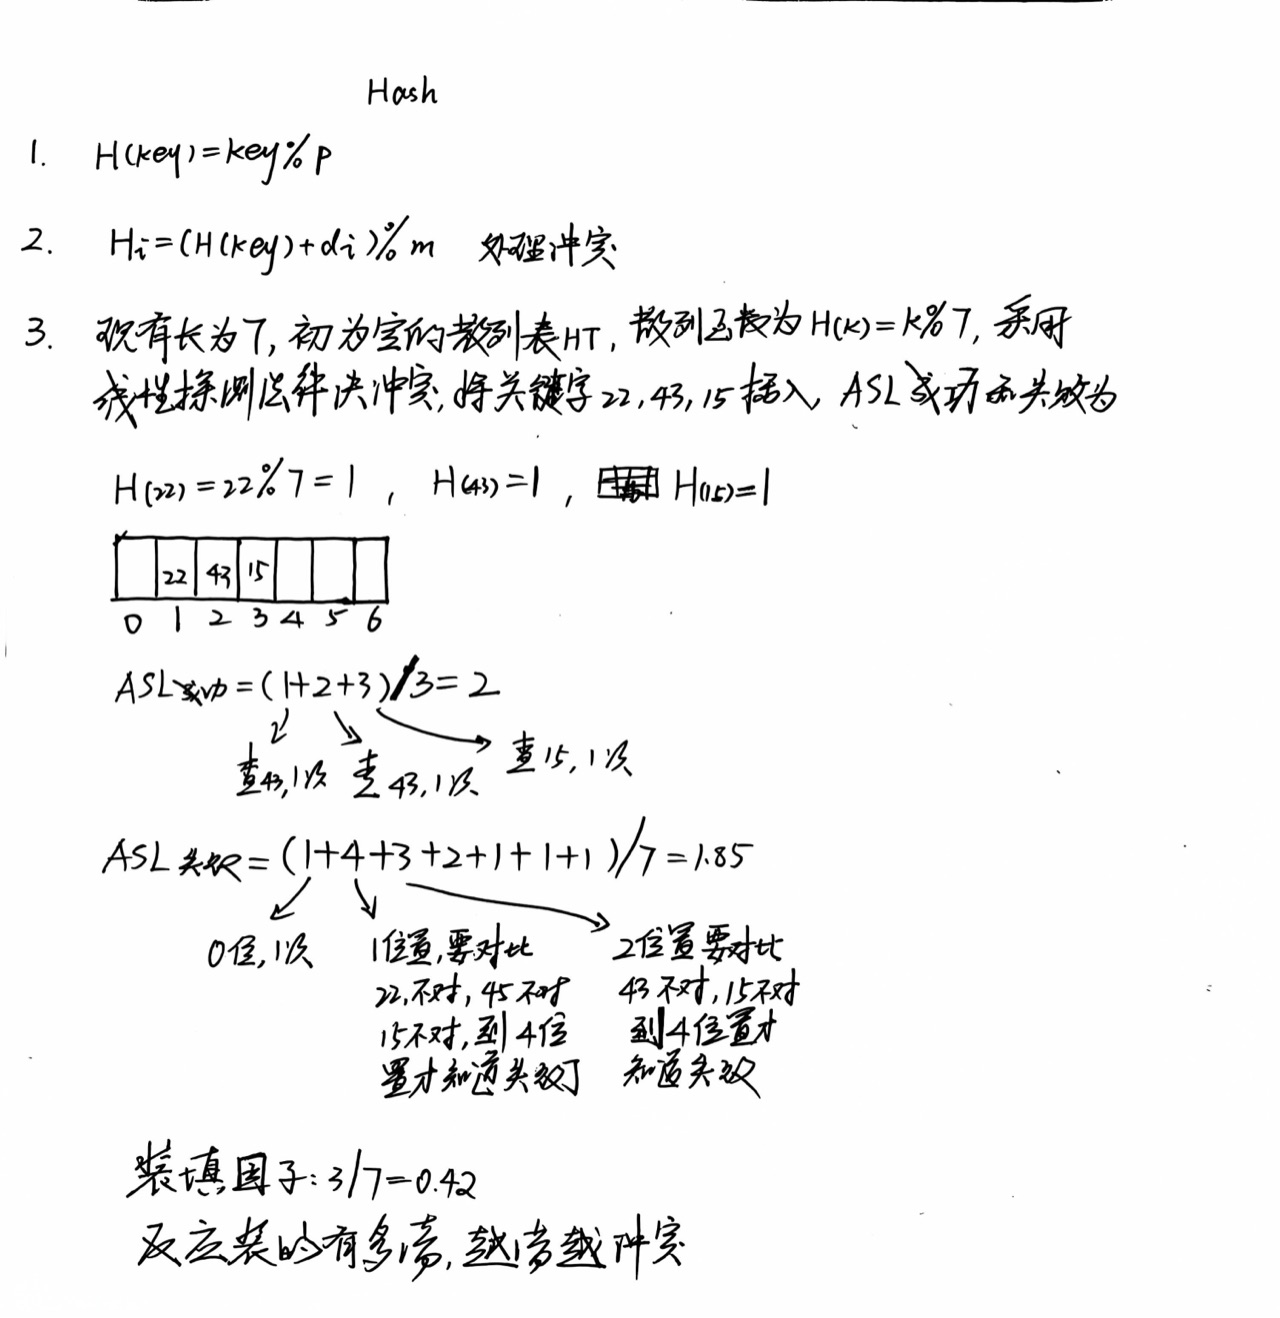 Hash
1. H(key)=key%p
2. Hi=(H(key)+di)%m 处理冲突
3. 现有长为7,初为空的散列表HT,散列函数为H(k)=k%7,采用
线性探测法解决冲突,将关键字22,43,15插入,ASL成功和失败为
H(22)=22%7=1, H(43)=1, H(15)=1
22 43 15
0 1 2 3 4 5 6
ASL成功=(1+2+3)/3=2
查43,1次 查43,1次 查15,1次
ASL失败=(1+4+3+2+1+1+1)/7=1.85
0位,1次 1位置,要对比 2位置要对比
22,不对,45不对 43不对,15不对
15不对,到4位 到4位置才
置才知道失败了 知道失败
装填因子:3/7=0.42
反应装的有多满,越满越冲突